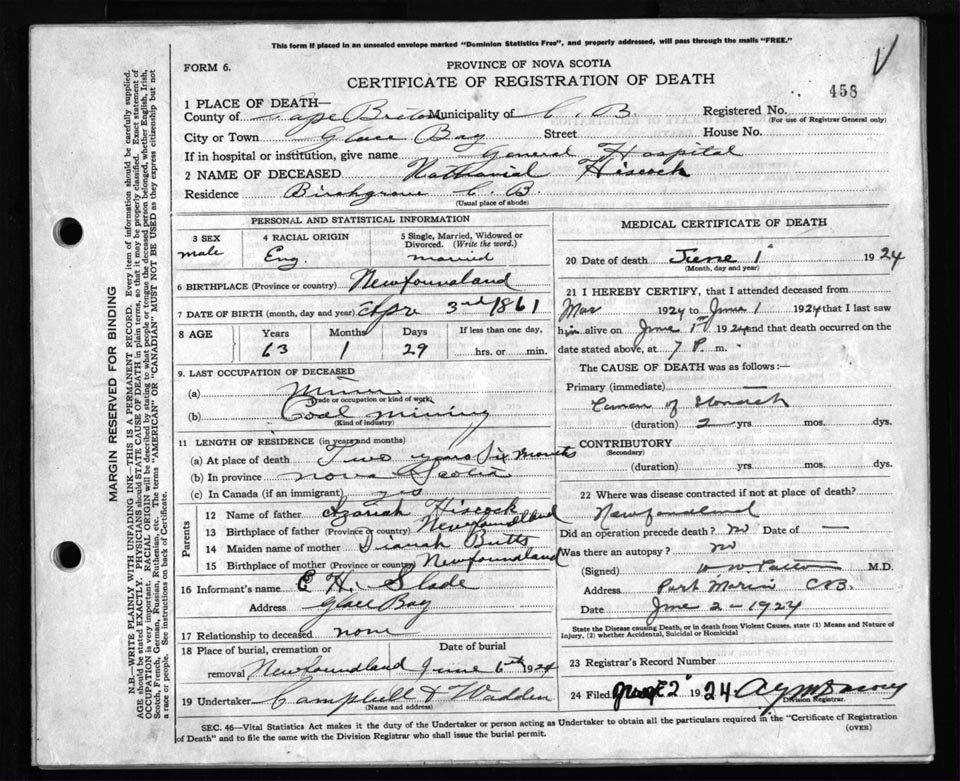 This form if placed in an unsealed envelope marked "Dominion Statistics Free", and properly addressed, will pass through the mails "FREE."
FORM 6.
PROVINCE OF NOVA SCOTIA
CERTIFICATE OF REGISTRATION OF DEATH
458
1 PLACE OF DEATH—
County of Cape Breton Municipality of C. B. Registered No.
(For use of Registrar General only)
City or Town Glace Bay Street House No.
If in hospital or institution, give name General Hospital
2 NAME OF DECEASED Nathanial Hiscock
Residence Birchgrove C. B.
(Usual place of abode)
PERSONAL AND STATISTICAL INFORMATION
3 SEX 4 RACIAL ORIGIN 5 Single, Married, Widowed or Divorced. (Write the word.)
male Eng. married
6 BIRTHPLACE (Province or country) Newfoundland
7 DATE OF BIRTH (month, day and year) 3rd 1861
8 AGE Years Months Days If less than one day,
63 1 29 hrs. or min.
9. LAST OCCUPATION OF DECEASED
(a) Miner
(Trade or occupation or kind of work)
(b) Coal mining
(Kind of industry)
11 LENGTH OF RESIDENCE (in years and months)
(a) At place of death Two years Six months
(b) In province Nova Scotia
(c) In Canada (if an immigrant) yes
Parents
12 Name of father Azariah Hiscock
13 Birthplace of father (Province or country) Newfoundland
14 Maiden name of mother Butts
15 Birthplace of mother (Province or country) Newfoundland
16 Informant's name E H. Slade
Address Glace Bay
17 Relationship to deceased none
18 Place of burial, cremation or removal Date of burial
Newfoundland June 6th 1924
19 Undertaker Campbell & Wadden
(Name and address)
MEDICAL CERTIFICATE OF DEATH
20 Date of death June 1 1924
(Month, day and year)
21 I HEREBY CERTIFY, that I attended deceased from
Mar 1924 to June 1 1924 that I last saw
him alive on June 1st 1924 and that death occurred on
date stated above, at 7 P. m.
The CAUSE OF DEATH was as follows:—
Primary (immediate)
Cancer of Stomach
(duration) 2 yrs. mos. dys.
CONTRIBUTORY
(Secondary)
(duration) yrs. mos. dys.
22 Where was disease contracted if not at place of death?
Newfoundland
Did an operation precede death? no Date of —
Was there an autopsy? no
(Signed) M.D.
Address Port Morien C.B.
Date June 2 - 1924
State the Disease causing Death, or in death from Violent Causes, state (1) Means and Nature of
Injury, (2) whether Accidental, Suicidal or Homicidal
23 Registrar's Record Number
24 Filed 2 1924
Division Registrar.
SEC. 46—Vital Statistics Act makes it the duty of the Undertaker or person acting as Undertaker to obtain all the particulars required in the "Certificate of Registration
of Death" and to file the same with the Division Registrar who shall issue the burial permit.
(OVER)
MARGIN RESERVED FOR BINDING
N.B.—WRITE PLAINLY WITH UNFADING INK—THIS IS A PERMANENT RECORD. Every item of information should be carefully supplied.
AGE should be stated EXACTLY. PHYSICIANS should STATE CAUSE OF DEATH in plain terms, so that it may be properly classified. Exact statement of
OCCUPATION is very important. RACIAL ORIGIN will be described by stating to what people or tongue the deceased person belonged, whether English, Irish,
Scotch, French, German, Russian, Ruthenian, etc. The terms "AMERICAN" OR "CANADIAN" MUST NOT BE USED as they express citizenship but not
a race or people. See instructions on back of Certificate.